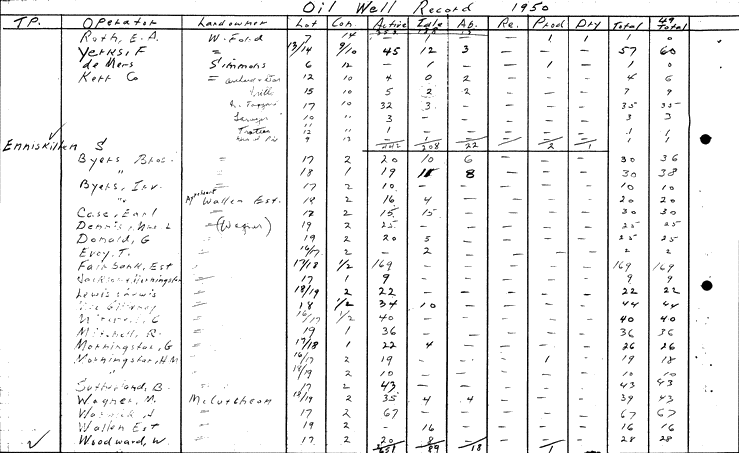 Oil Well Record 1950
TP. Operator Landowner Lot Con. Active Idle Ab. Re. Prod Dry Total 49 Total
Roth, E. A. W. Ford 7 14 — 1 — — 1 1 1 0
Yerks, F = 13/14 9/10 45 12 3 — — — 57 60
de Mers Simmons 6 12 — 1 — — 1 — 1 0
Kerr Co = 12 10 4 0 2 — — — 4 6
15 10 5 2 2 — — — 7 9
17 10 32 3 — — — — 35 35
10 " 3 — — — — — 3 3
12 " 1 — — — — — 1 1
9 12 1 1
208 22 — 2 1
Enniskillen S
Byers Bros. = 17 2 20 10 6 — — — 30 36
" = 18 1 19 8 — — — 30 38
Byers, Irv. = 17 2 10 — — — — — 10 10
" Wallen Est. 18 2 16 4 — — — — 20 20
Case, Earl = 17 2 15 15 — — — — 30 30
Dennis, Mrs L (Wagner) 19 2 25 — — — — — 25 25
Donald, G = 19 2 20 5 — — — — 25 25
Evoy, T. = 16/17 2 — 2 — — — — 2 2
Fairbank, Est = 17/18 1/2 169 — — — — — 169 169
Jackson Morningstar = 17 1 9 — — — — — 9 9
Lewis = 18/19 2 22 — — — — — 22 22
= 18 1/2 34 10 — — — — 44 44
= 16/17 1/2 40 — — — — — 40 40
Mitchell, R. = 19 1 36 — — — — — 36 36
Morningstar, G = 17/18 1 22 4 — — — — 26 26
Morningstar, H M = 16/17 2 19 — — — 1 — 19 18
" = 18/19 2 10 — — — — — 10 10
Sutherland, B. = 17 2 43 — — — — — 43 43
Wagner, M. McCutcheon 18/19 2 35 4 4 — — — 39 43
= 17 2 67 — — — — — 67 67
Wallen Est = 17 2 — 16 — — — — 16 16
Woodward, W. = 17 2 20 8 — — — — 28 28
89 18 1